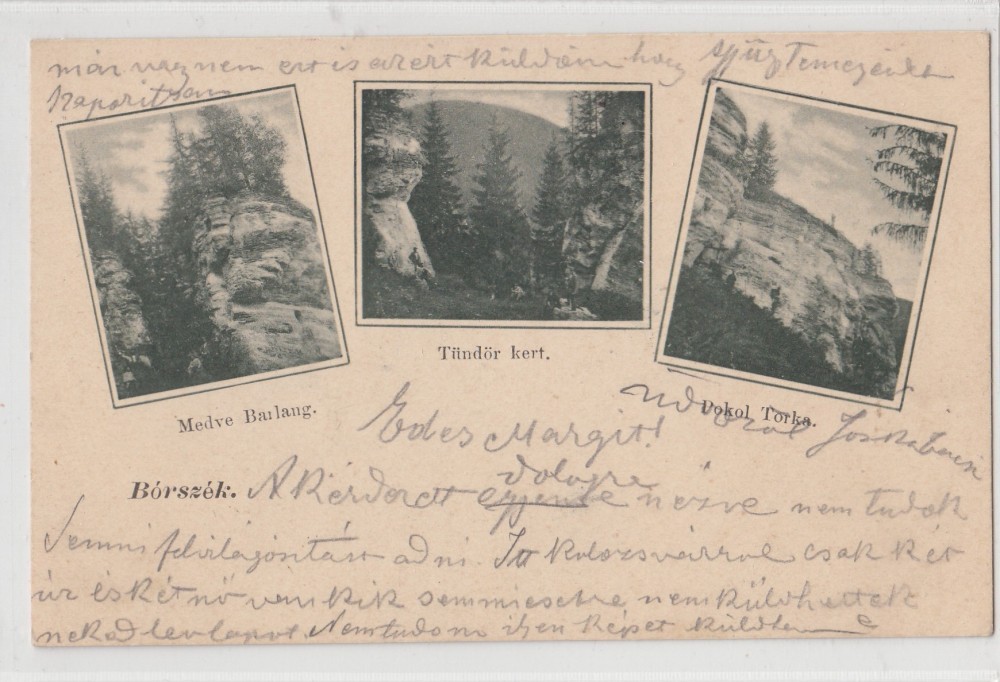 már vagy nem ezt is azért küldöm hogy gyűjtemenyedet
kaparitsam
Medve Barlang.
Tündör kert.
Pokol Torka.
Üdvözöl Joskabacsi
Edes Margit!
dologra
Bórszék. A kérdezett nézve nem tudok
Semmi felvilágositást adni. Itt Kolozsvárrol csak két
úr és két nő van kik semmiesetre nem küldhettek
neked levlapot. Nem tudom ilyen képet küldtem e